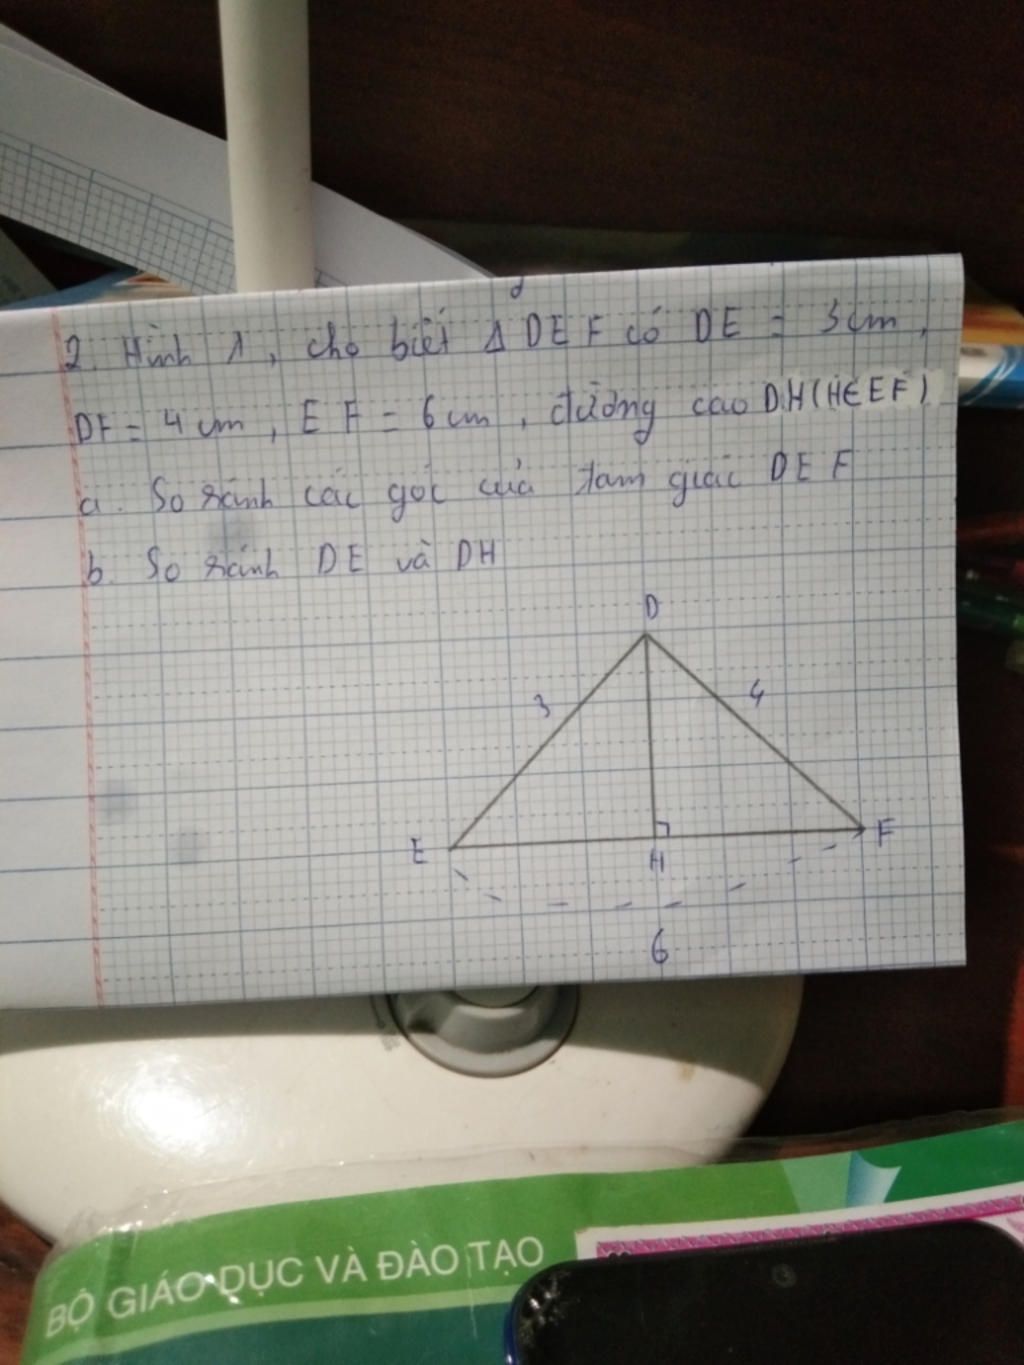 2. Hình 1, cho biết Δ DEF có DE = 3cm,
DF = 4 cm, EF = 6 cm, đường cao DH (H∈EF)
a. So sánh các góc của tam giác DEF
b. So sánh DE và DH
D
3
4
E
H
F
6
BỘ GIÁO DỤC VÀ ĐÀO TẠO